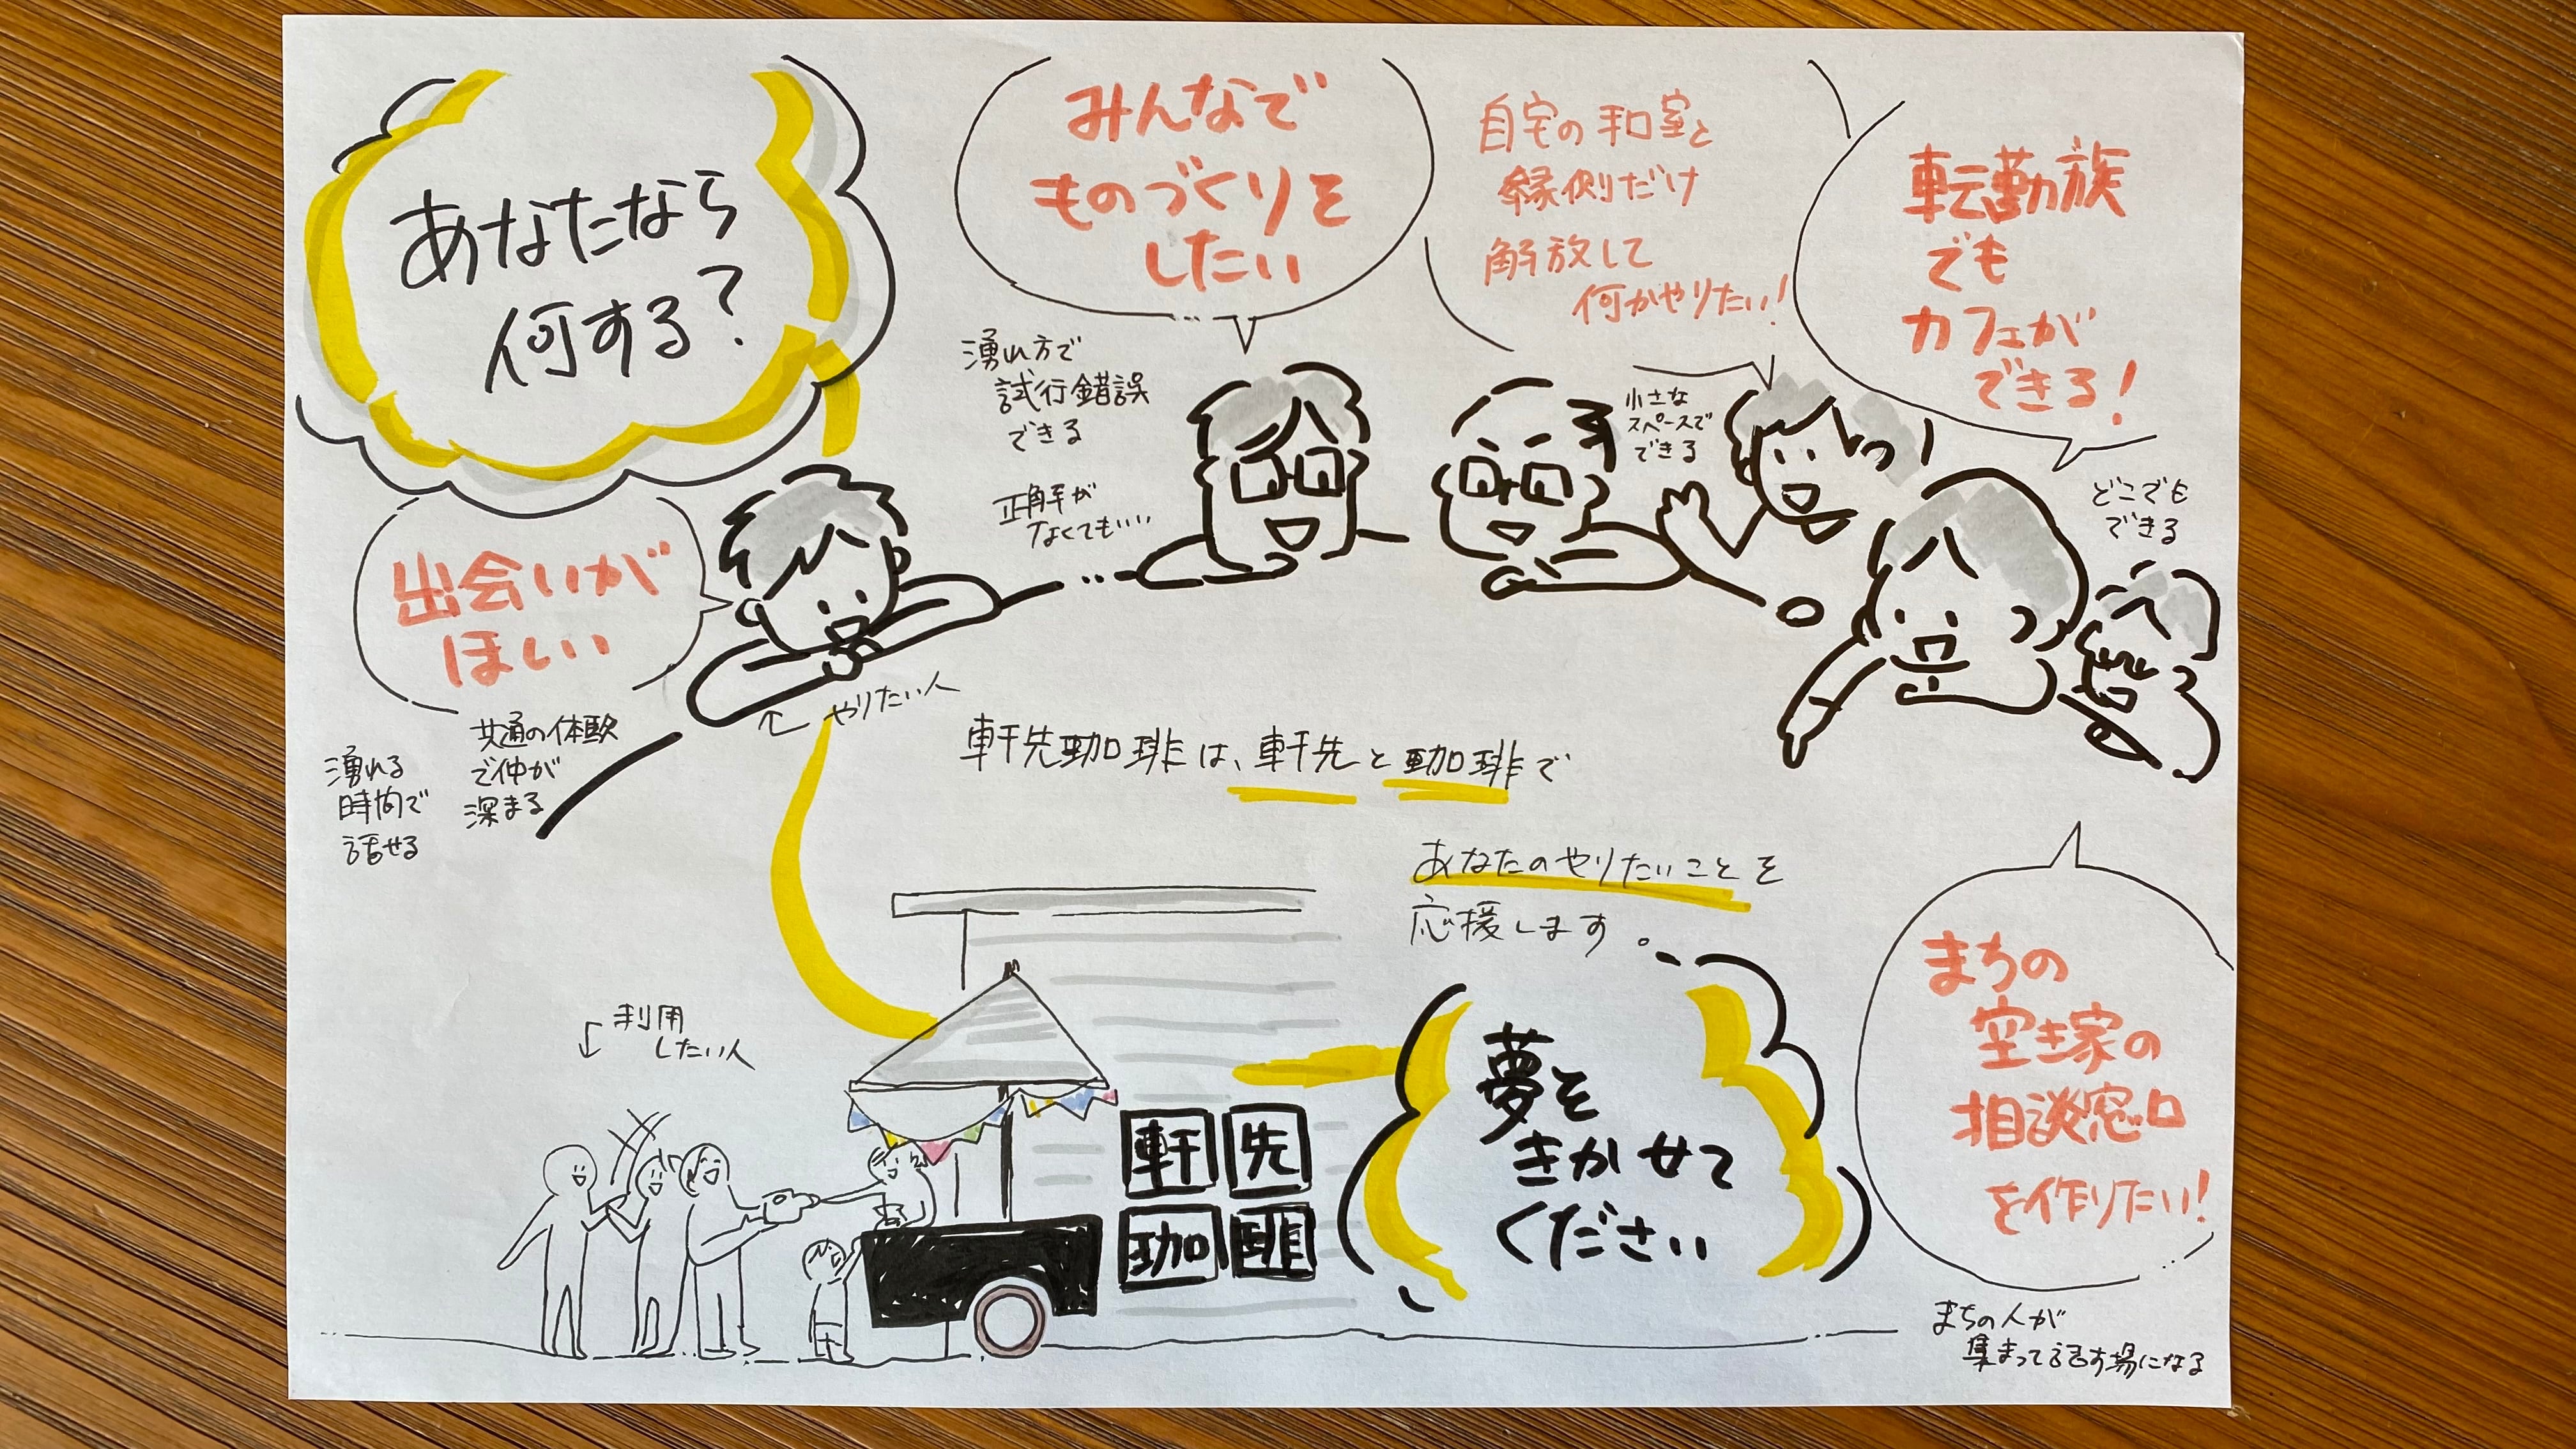 あなたなら
何する？
みんなで
ものづくりを
したい
自宅の和室と
縁側だけ
解放して
何かやりたい！
転勤族
でも
カフェが
できる！
湧れ方で
試行錯誤
できる
正解が
なくてもいい
小さな
スペースで
できる
どこでも
できる
出会いが
ほしい
共通の体験
で仲が
深まる
湧れる
時間で
話せる
やりたい人
軒先珈琲は、軒先と珈琲で
あなたのやりたいことを
応援します。
利用
したい人
軒先
珈琲
夢を
きかせて
ください
まちの
空き家の
相談窓口
を作りたい！
まちの人が
集まって話す場になる